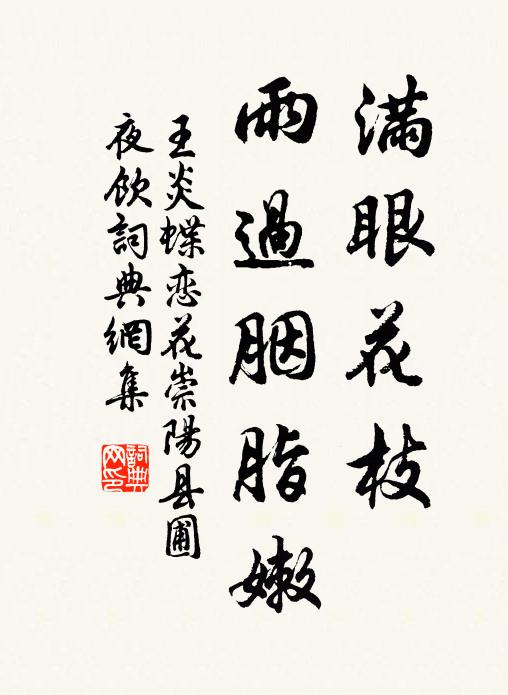 滿眼花枝
雨過胭脂嫩
王炎蝶恋花崇陽县圃
夜飲詞典網集
詞典
网印